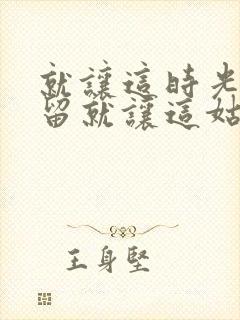 就讓這時光
留就讓這姑
王身堅